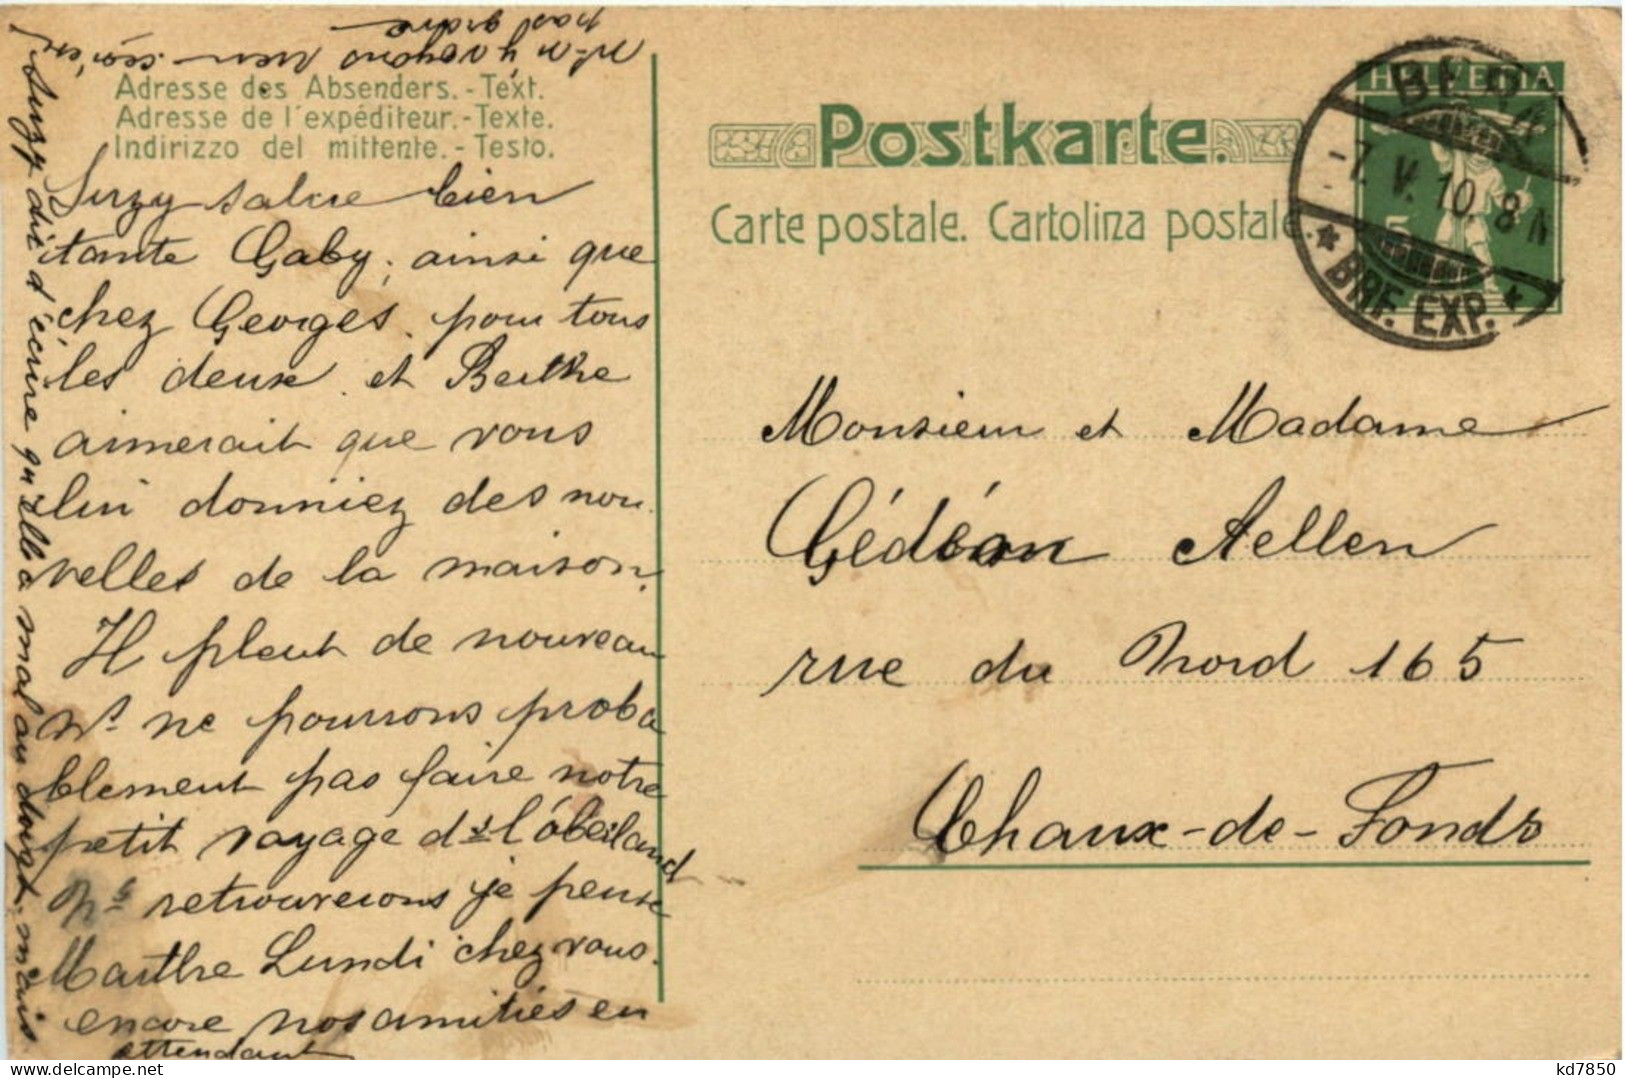 Adresse des Absenders. - Text.
Adresse de l'expéditeur. - Texte.
Indirizzo del mittente. - Testo.
Suzy salue bien
tante Gaby, ainsi que
chez Georges. pour tous
les deux. et Berthe
aimerait que vous
lui donniez des nou-
velles de la maison.
Il pleut de nouveau
Ns. ne pourrons proba
blement pas faire notre
petit voyage ds l'Oberland
Ns retrouverons je pense
Marthe Lundi chez vous.
encore nos amitiés en
attendant
Suzy dit d'écrire qu'elle a mal au doigt. mais
ns. n'y voyons rien
pas grave
Postkarte.
Carte postale. Cartolina postale.
HELVETIA
5
BERN
-7. V. 10. 8
BRF. EXP.
Monsieur et Madame
Gédéon Aellen
rue du Nord 165
Chaux-de-Fonds
kd7850